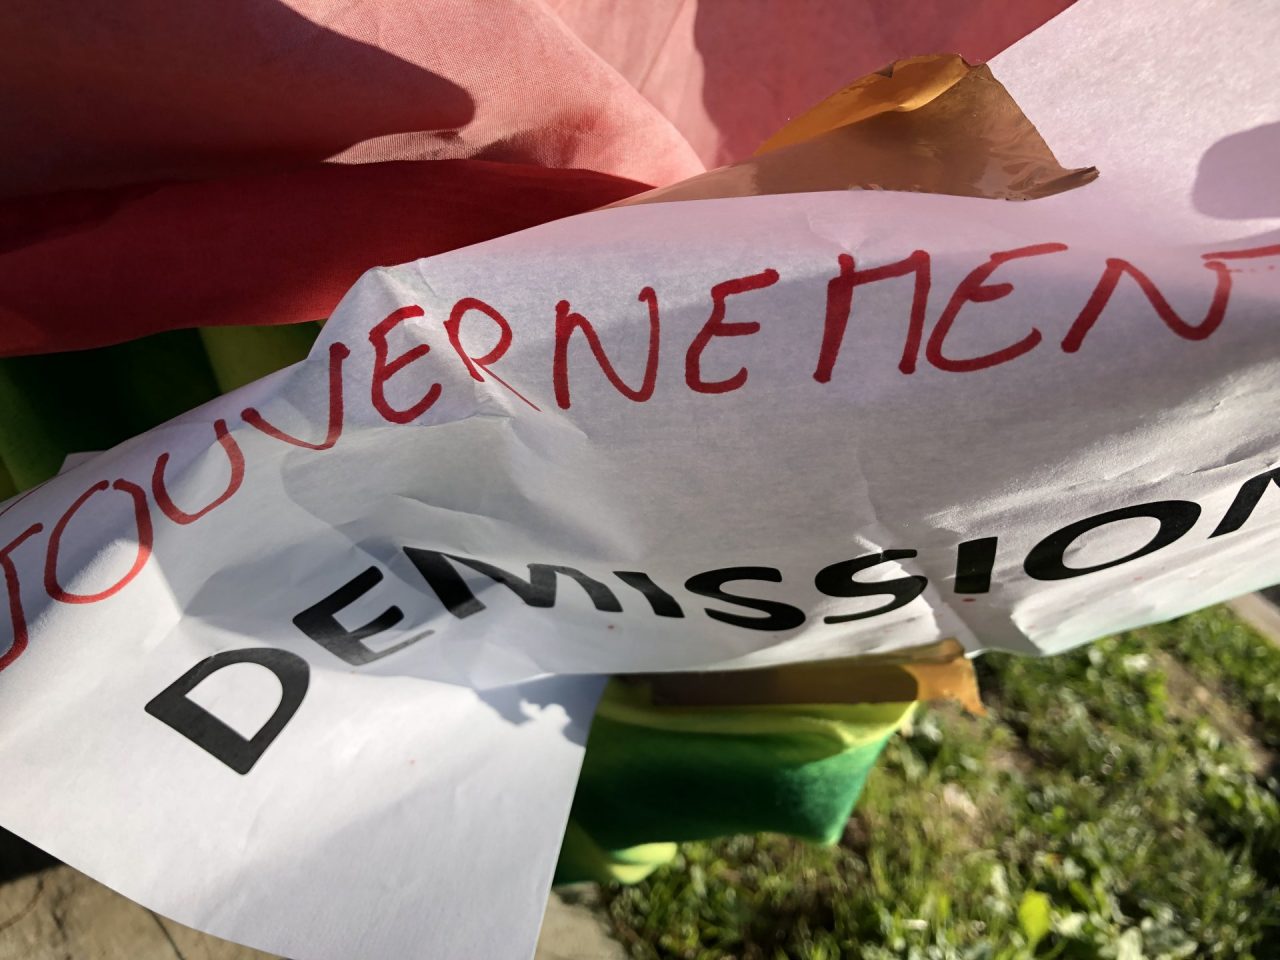 GOUVERNEMENT
DEMISSION